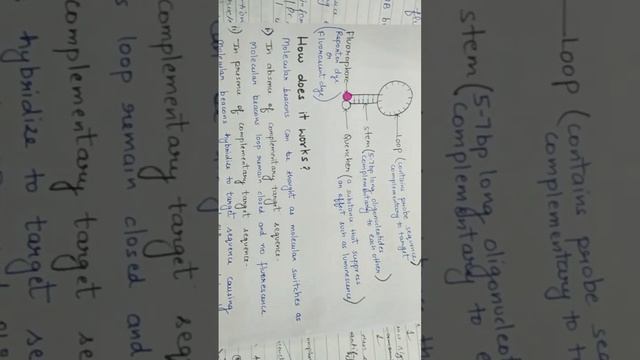 loop (contains probe sequence
complementary to target)
stem (5-7bp long oligonucleotides
complementary to each other)
Quencher (a substance that suppress
an effect such as luminescence)
Fluorophore
Reported dye
or
(Fluorescent dye)
How does it works?
Molecular beacons can be thought as molecular switches as
i) In absence of complementary target sequence.
Molecular beacons loop remain closed and no fluorescence
ii) In presence of complementary target sequence-
Molecular beacons hybridize to target sequence causing
Loop (contains probe se
complementary to t
stem (5-7bp long oligonucleot
complementary to e
complementary target seq
s loop remain closed and
complementary target se
hybridize to target se